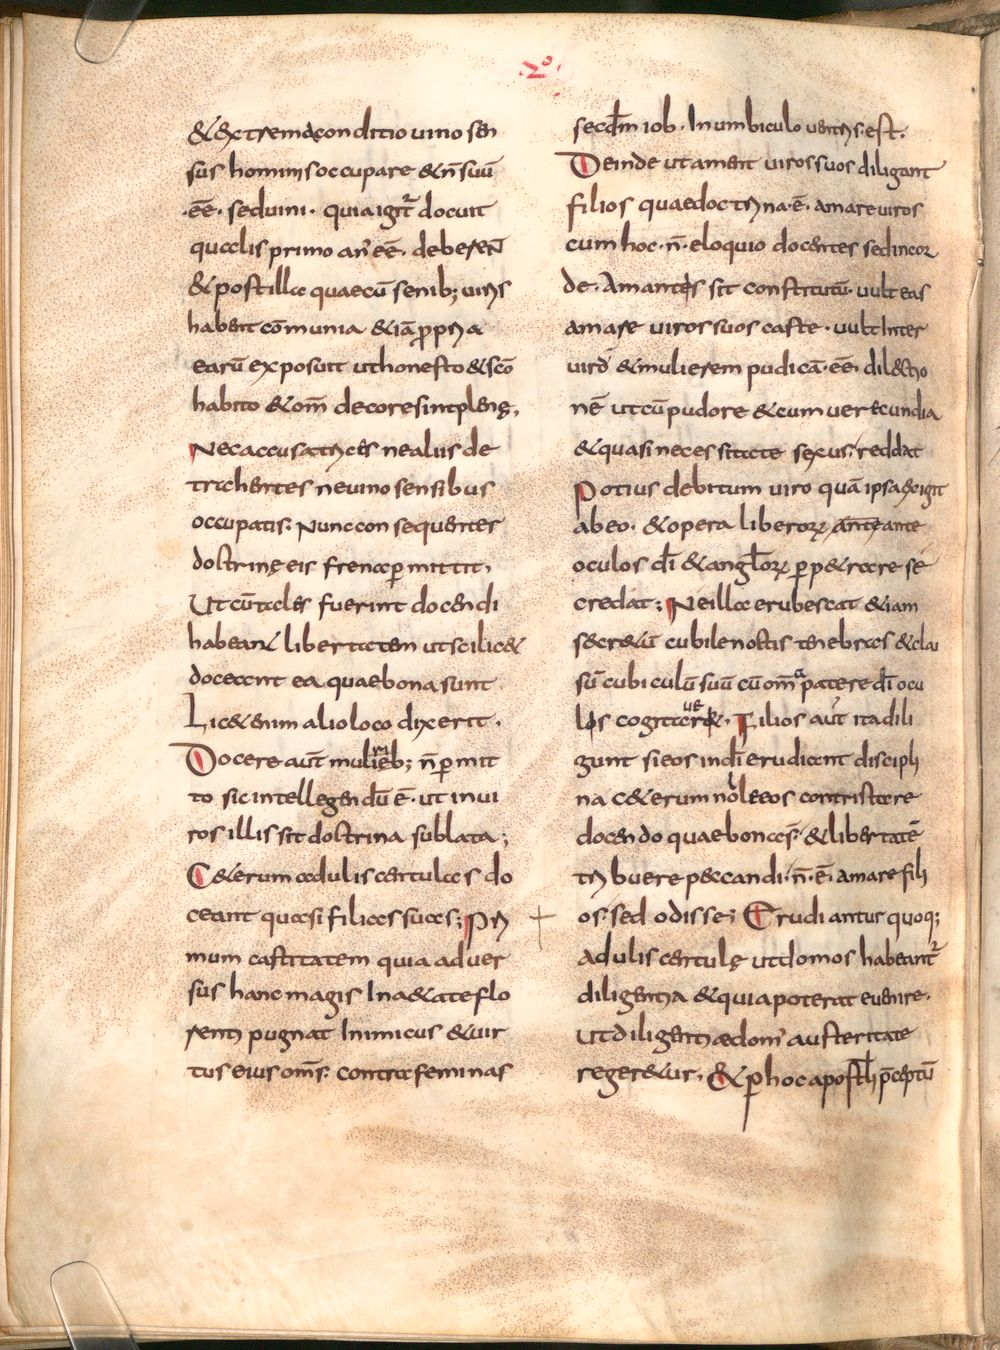 ·2º·
& extrema conditio uino sen
sus hominis occupare & n̄ suū
·ēē· seduini· quia igit̃ docuit
quales primo an̉ ēē· deberen̄t
& post illa quae cū senib; uiris
habent cōmunia & iā ꝓpria
earū exposuit ut honesto & sc̄o
habito & om̄ decore sint plenę,
Nec accusatrices ne aliis de
trahentes ne uino sensibus
occupatis· Nunc consequenter
doctrinę eis frena ꝑmittit,
Ut cū tales fuerint docendi
habean̄t libertatem ut scilic&
doceant ea quae bona sunt
Lic& enim alio loco dixerit·
Docere aūt mulierib; n̄ ꝑmit
to sic intellegendū ē· ut in ui
ros illis sit doctrina sublata;
C&erum adulis centulas do
ceant quasi filias suas; Pri
mum castitatem quia aduer
sus hanc magis In a&ate flo
renti pugnat Inimicus & uir
tus eius om̄s· contra feminas
secd̄m iob· In umbiculo uentris· est·
Deinde ut ament uiros suos diligant
filios quae doctrina· ē· amare uiros
cum hoc· n̄· eloquio docentes sed in cor
de· Amantes sit constitutū· uult eas
amare uiros suos caste· uult Inter
uirū & mulierem pudicā· ēē· dilectio
nē ut cū pudore & cum uerecundia
& quasi necessitate sexus· reddat
Potius debitum uiro quā ipsa exigit
ab eo· & opera liberoꝝ ante ante
oculos dī & angl̄oꝝ ꝑp&rare se
credat; Ne illa erubescat & iam
secr&ū cubile noctis tenebras & clau
sū cubiculū suū cū om̄a patere dī ocu
lis cogitauer· Filios aūt ita dili
gunt si eos in dī erudiant discipli
na c&erum nol eos contristare
docendo quae bona ēs· & libertatē
tribuere peccandi· n̄· ē· amare fili
os· sed odisse; Erudiantur quoq;
adulis centulę ut domos habeant̃
diligentia & quia poterat euenire·
Ut diligentia dom̉ austeritate
reger&ur· & ꝑ hoc apostl̄i p̄ceptū